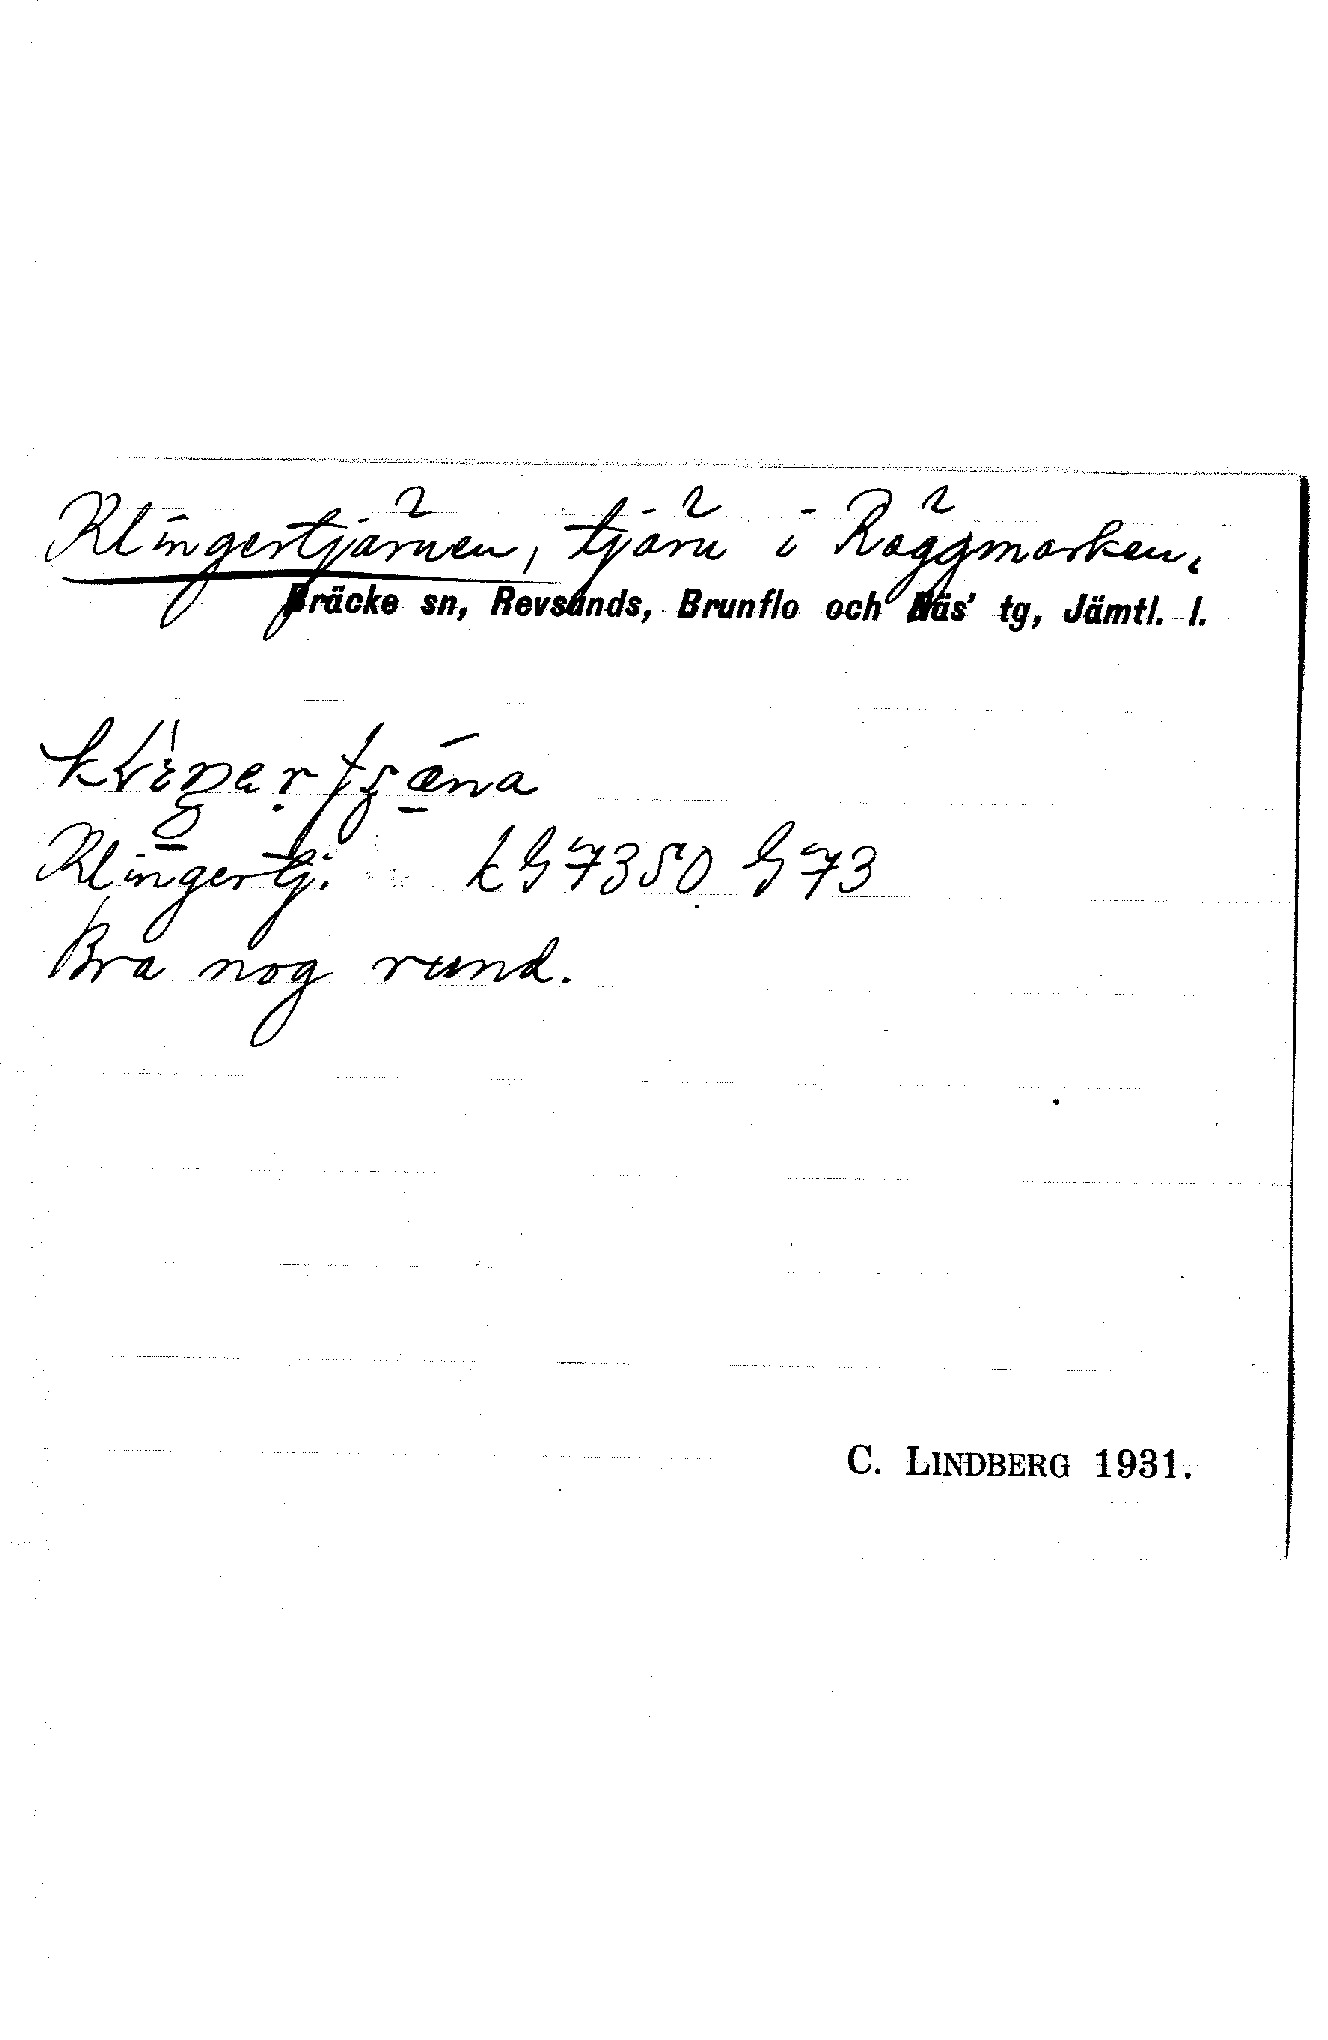 Klingertjärnen, tjärn i Räggmarken.
Bräcke sn, Revsunds, Brunflo och Näs' tg, Jämtl. l.
Klingertj. kG 7350 G 73
Bra nog rund.
C. LINDBERG 1931.